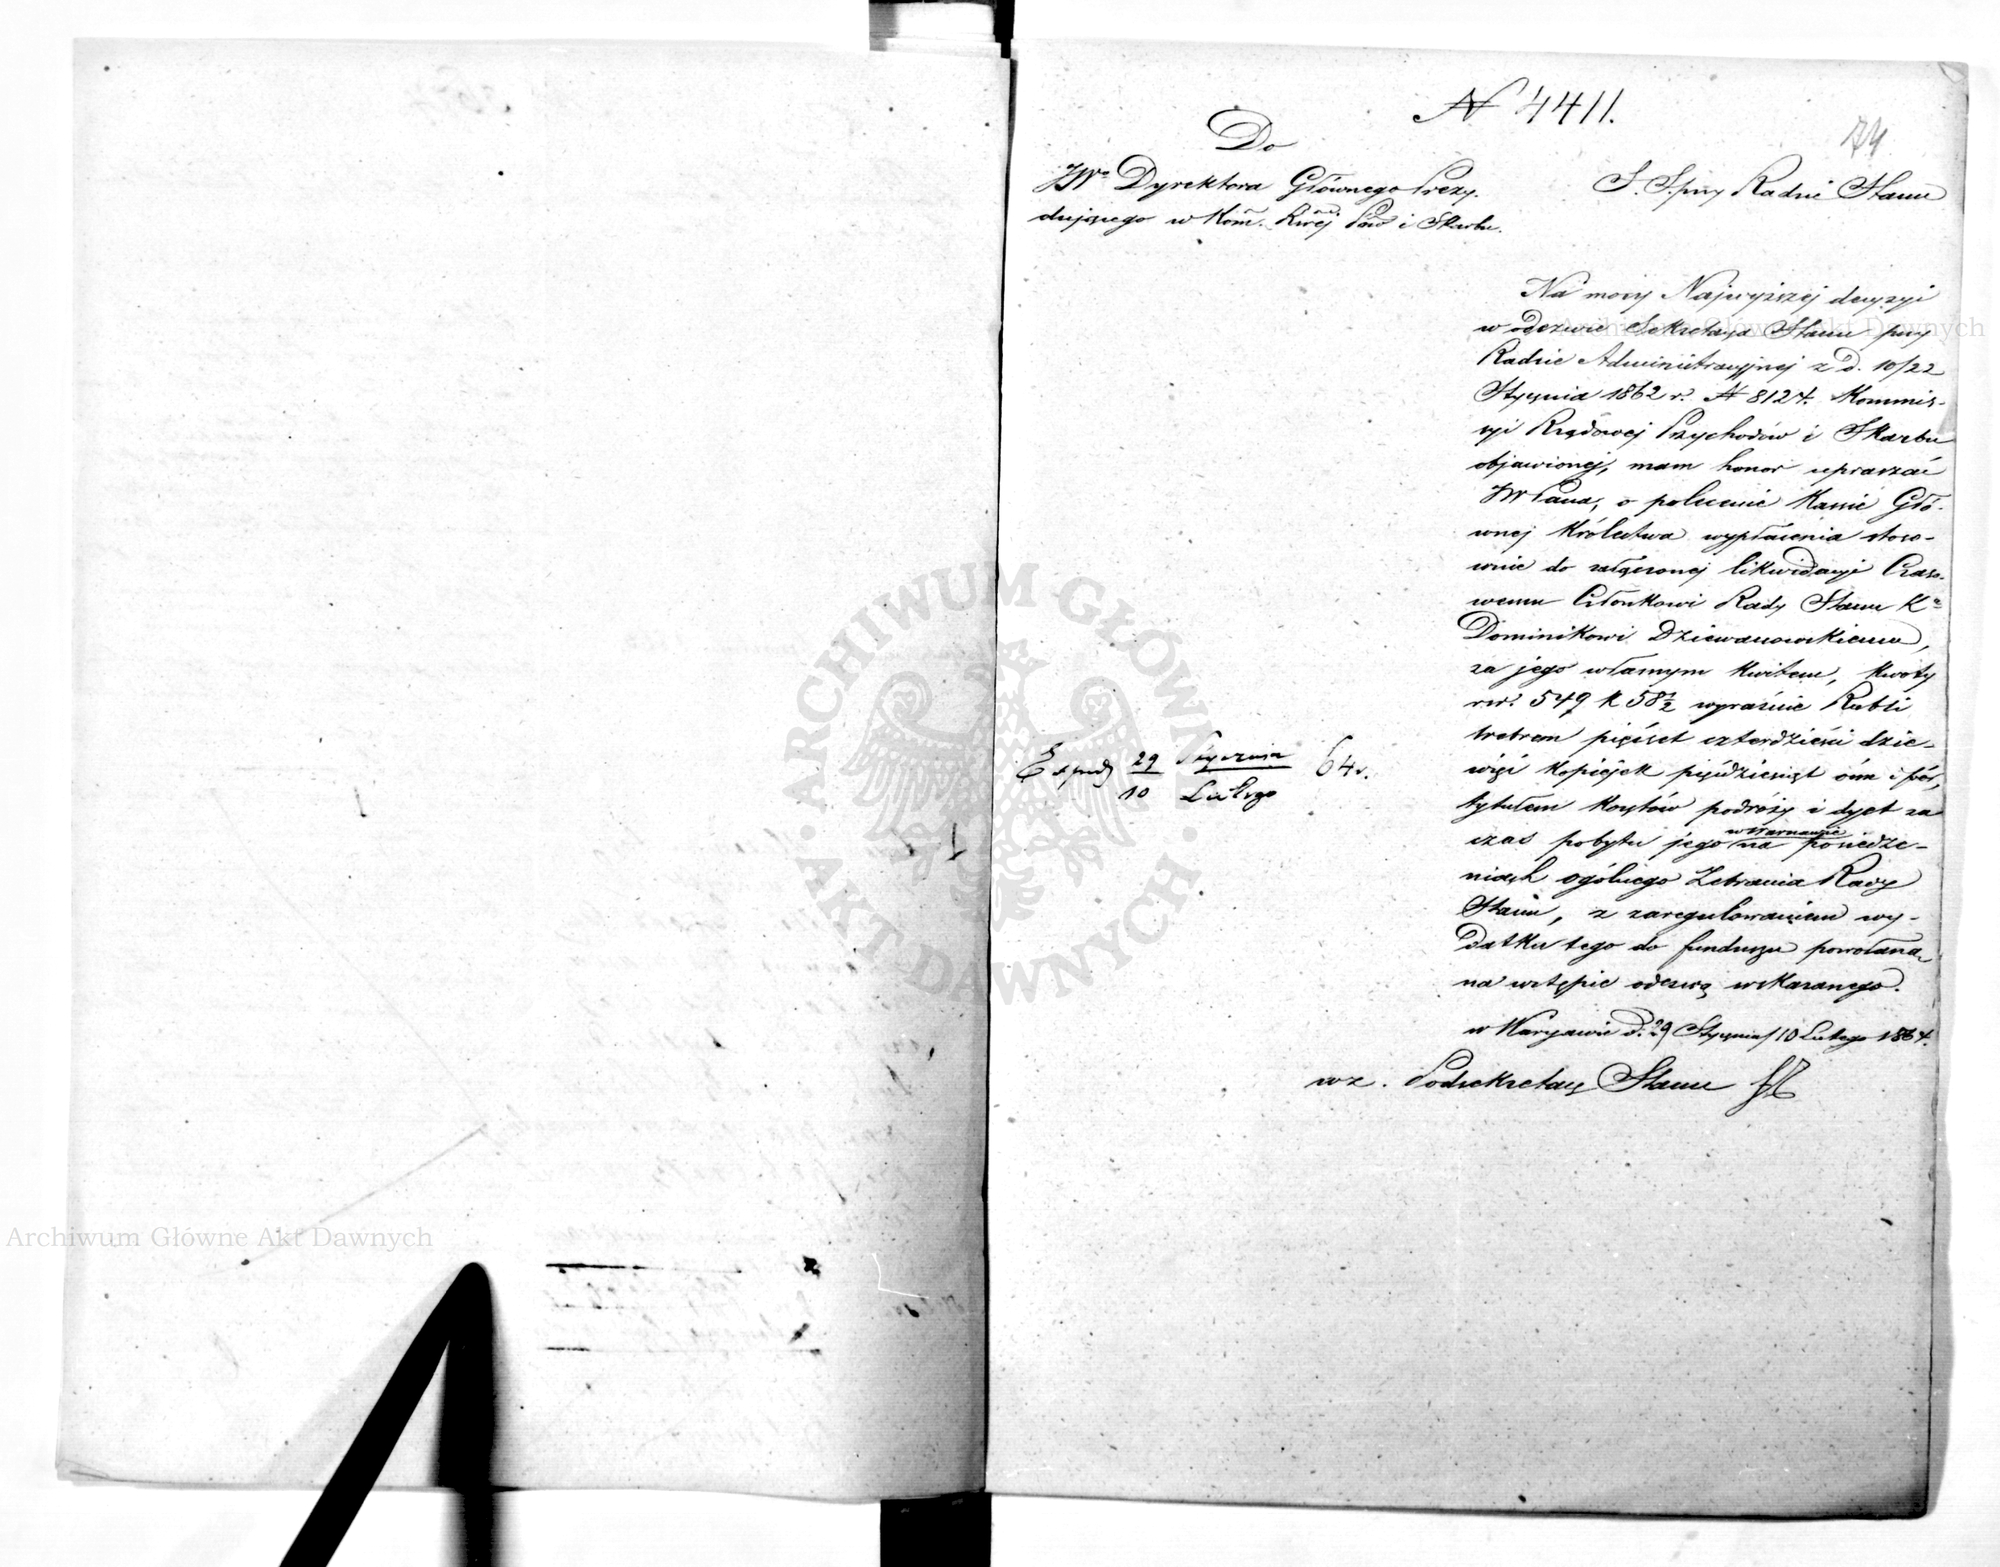 N 4411.
74
Do
JWo Dyrektora Głównego Prezy-
dującego w Kom. Rwéj Prz i Skarbu.
S. S. przy Radzie Stanu
Na mocy Najwyższej decyzyi
w odezwie Sekretarza Stanu przy
Radzie Administracyjnej z d. 10/22
Stycznia 1862 r. N 8124. Kommis-
syi Rządowej Przychodów i Skarbu
objawionej, mam honor upraszać
JW Pana, o polecenie Kassie Głó-
wnej Królestwa wypłacenia stoso-
wnie do załączonej likwidacyi Czaso-
wemu Członkowi Rady Stanu Ka
Dominikowi Dziewanowskiemu,
za jego własnym kwitem, kwoty
rsr. 549 k 58½ wyraźnie Rubli
srebrem pięćset czterdzieści dzie-
więć kopiejek pięćdziesiąt ośm i pół,
tytułem kosztów podróży i dyet za
czas pobytu jego w Warszawie na posiedze-
niach ogólnego Zebrania Rady
Stanu, z zaregulowaniem wy-
datku tego do funduszu powołaną
na wstępie odezwą wskazanego.
w Warszawie d. 29 Stycznia/10 Lutego 1864.
wz. Podsekretarz Stanu
Exped 29/10 Stycznia/Lutego 64 r.
ARCHIWUM GŁÓWNE AKT DAWNYCH
Archiwum Główne Akt Dawnych
Archiwum Główne Akt Dawnych